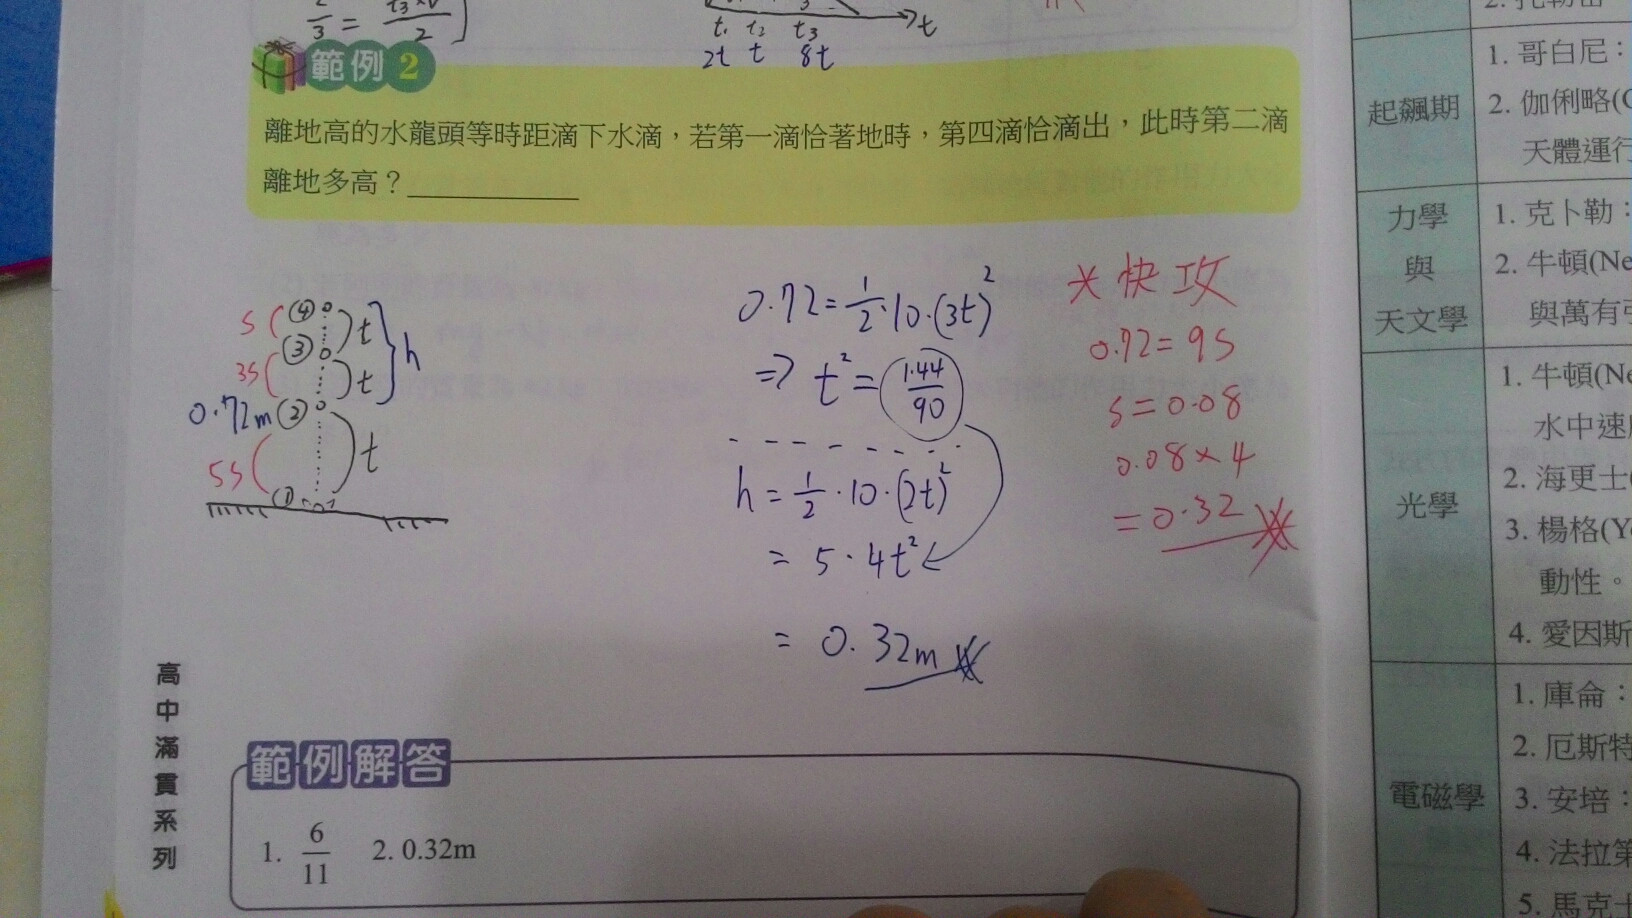 t₁ t₂ t₃
→t
2t t 8t
範例 2
離地高的水龍頭等時距滴下水滴，若第一滴恰著地時，第四滴恰滴出，此時第二滴
離地多高？
S ④ t
3S ③ t h
0.72m ②
5S t
①
0.72=½·10·(3t)²
⇒ t²= 1.44/90
h=½·10·(2t)²
= 5·4t²
= 0.32m
快攻
0.72=9S
S=0.08
0.08×4
=0.32
範例解答
1. 6/11 2. 0.32m
高中滿貫系列
起飆期
1. 哥白尼：
2. 伽俐略(
天體運行
力學
與
天文學
1. 克卜勒：
2. 牛頓(Ne
與萬有引
光學
1. 牛頓(Ne
水中速
2. 海更士(
3. 楊格(Y
動性。
4. 愛因斯
電磁學
1. 庫侖：
2. 厄斯特
3. 安培：
4. 法拉第
5. 馬克士